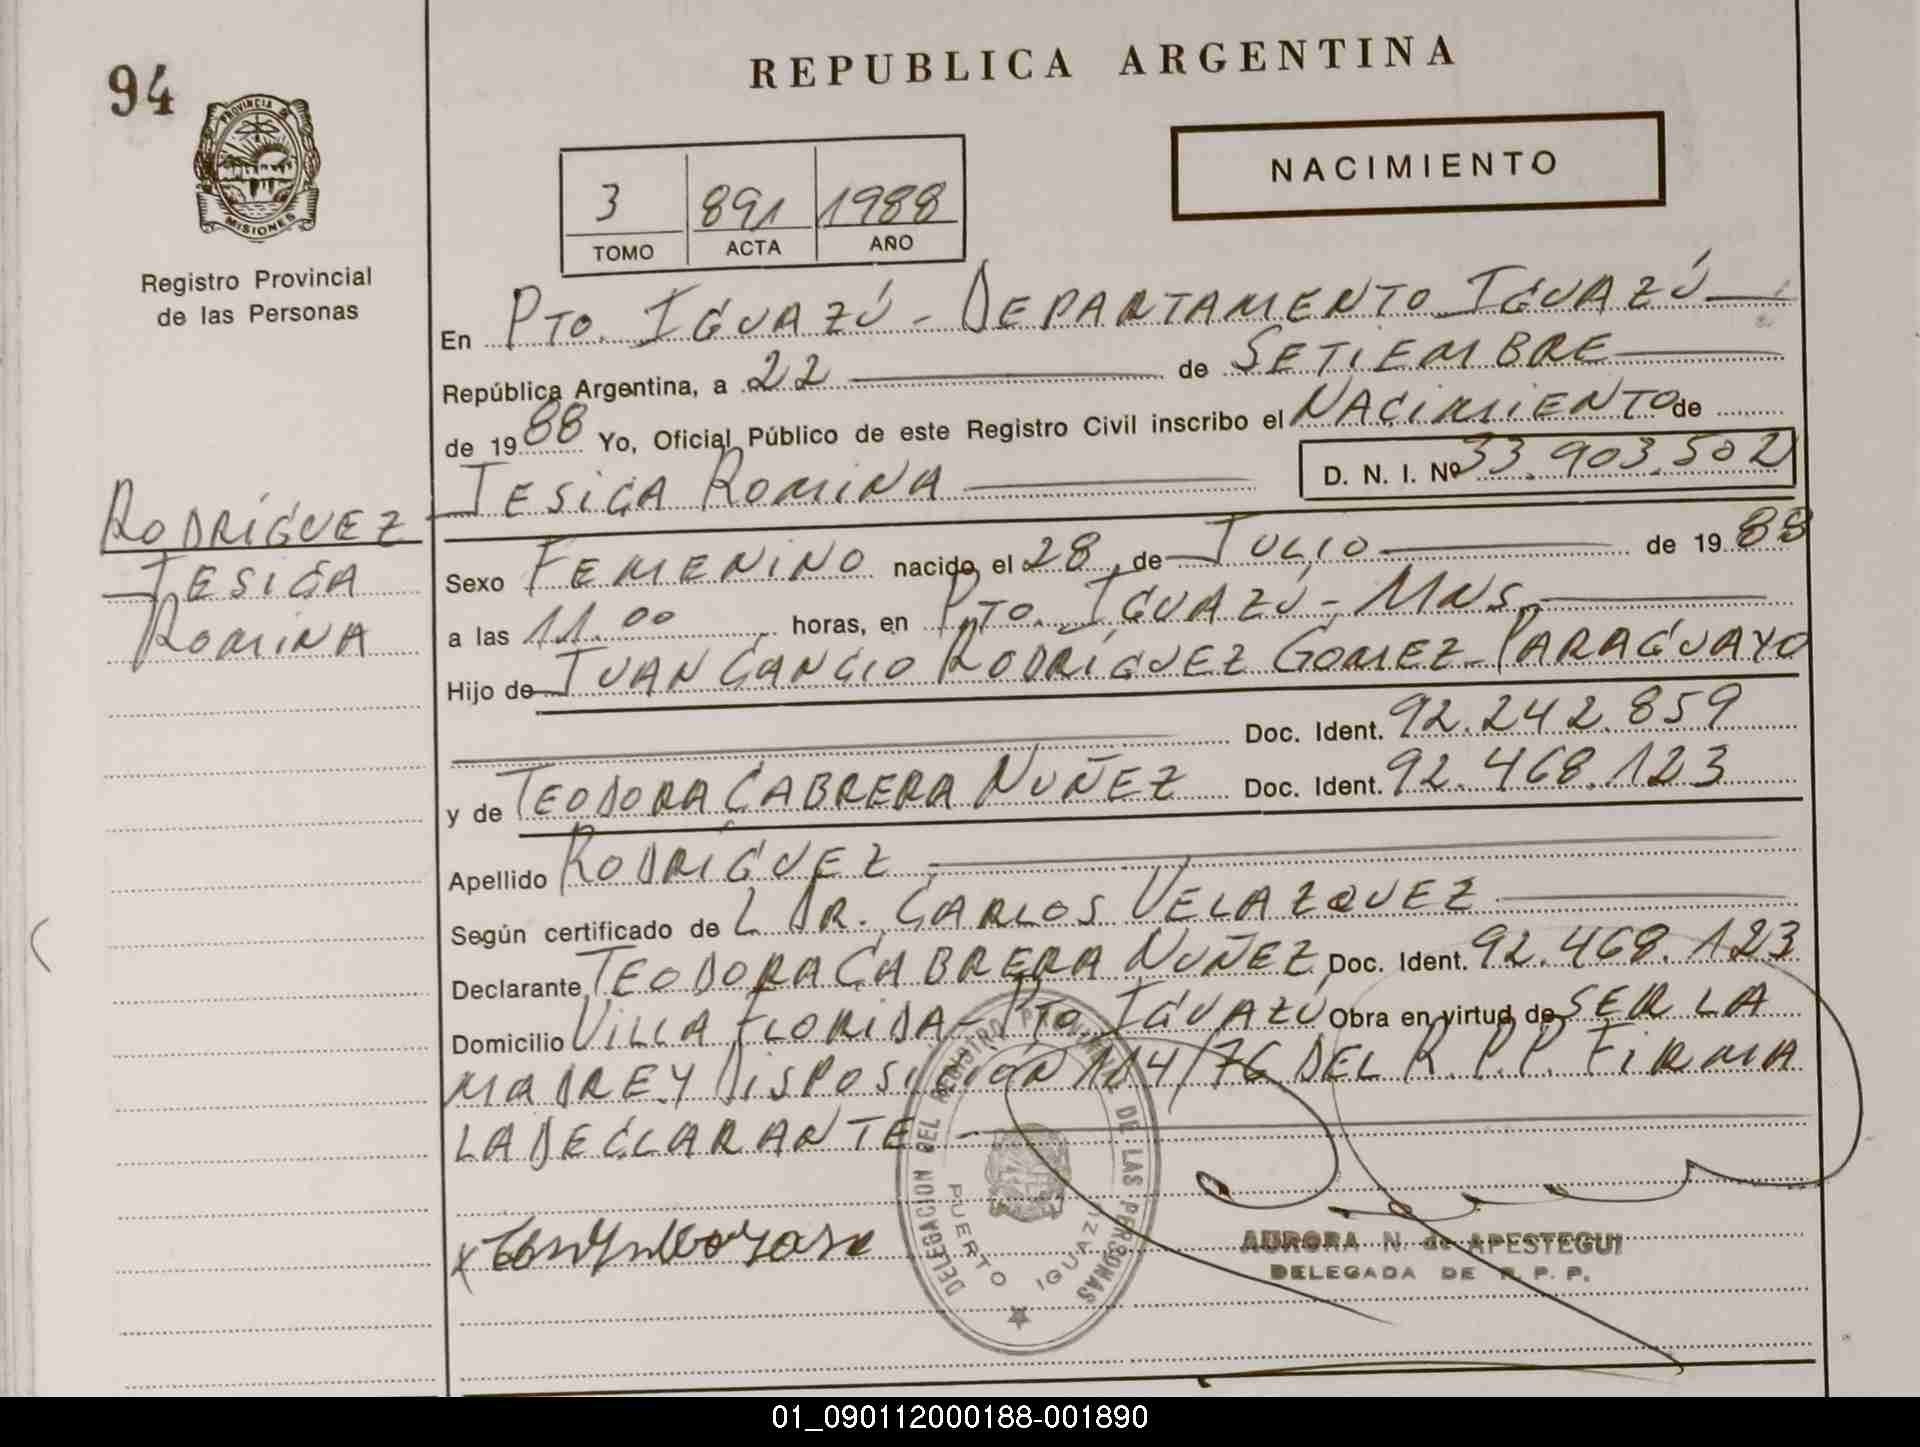 94
REPUBLICA ARGENTINA
PROVINCIA DE
MISIONES
Registro Provincial
de las Personas
NACIMIENTO
3 891 1988
TOMO ACTA AÑO
En PTO. IGUAZÚ - DEPARTAMENTO IGUAZÚ
República Argentina, a 22 de SETIEMBRE
de 1988 Yo, Oficial Público de este Registro Civil inscribo el NACIMIENTO de
JESICA ROMINA D. N. I. Nº 33.903.502
RODRÍGUEZ
JESICA
ROMINA
Sexo FEMENINO nacido el 28 de JULIO de 1988
a las 11.00 horas, en PTO. IGUAZÚ - MNS.
Hijo de JUAN CANCIO RODRÍGUEZ GOMEZ - PARAGUAYO
Doc. Ident. 92.242.859
y de TEODORA CABRERA NUÑEZ Doc. Ident. 92.468.123
Apellido RODRÍGUEZ
Según certificado de L DR. CARLOS VELAZQUEZ
Declarante TEODORA CABRERA NUÑEZ Doc. Ident. 92.468.123
Domicilio VILLA FLORIDA - PTO. IGUAZÚ Obra en virtud de SER LA
MADRE Y DISPOSICIÓN 114/76 DEL R.P.P. FIRMA
LA DECLARANTE
DELEGACION DEL REGISTRO PROVINCIAL DE LAS PERSONAS
PUERTO IGUAZU
AURORA N. de APESTEGUI
DELEGADA DE R. P. P.
01_090112000188-001890